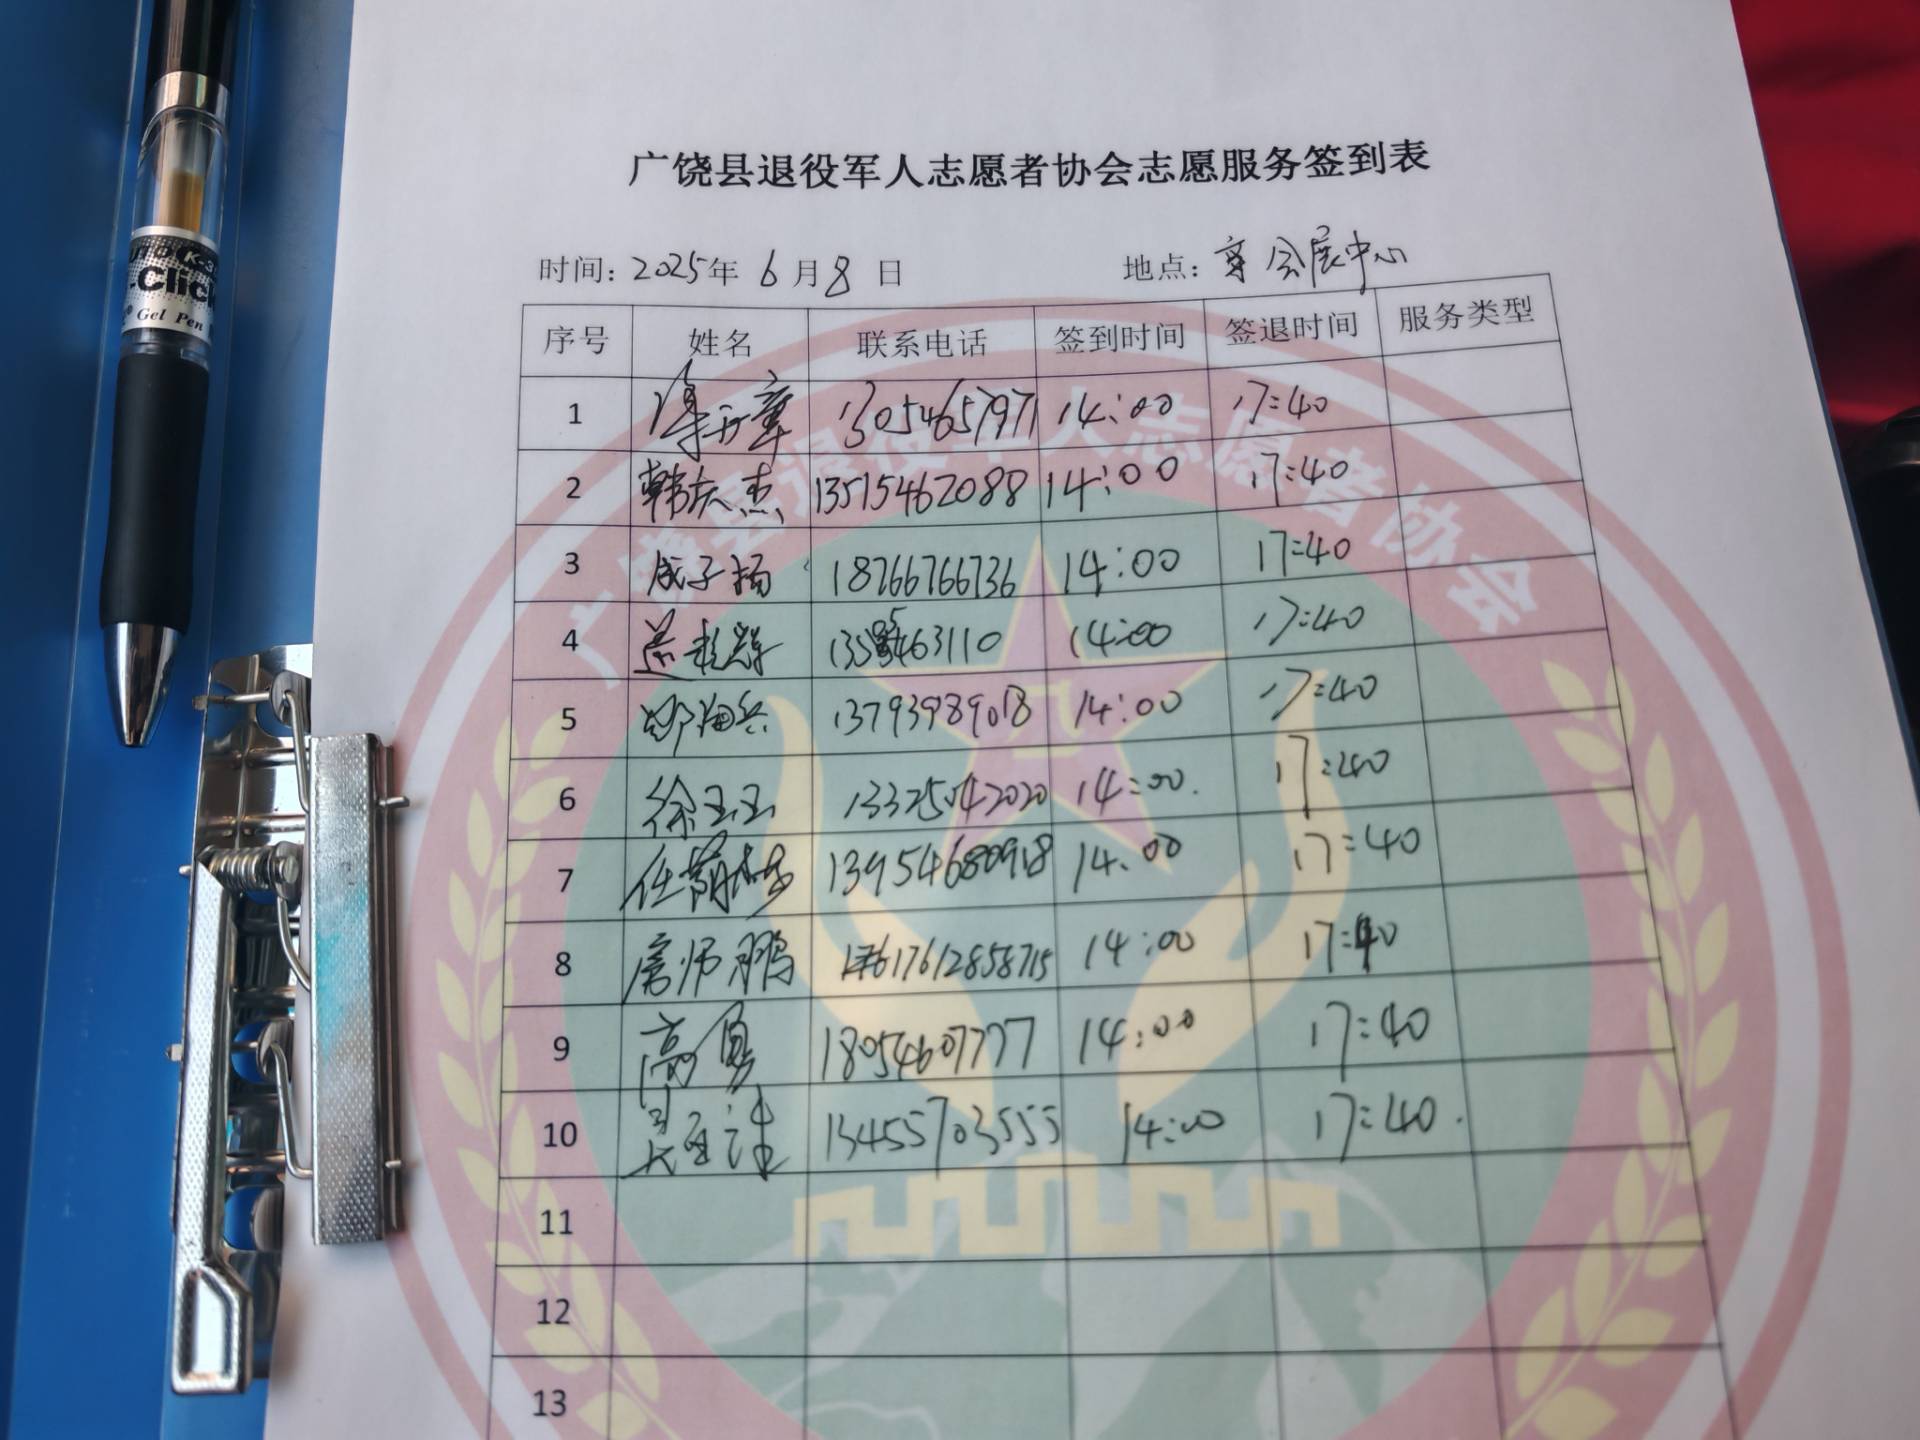 广饶县退役军人志愿者协会志愿服务签到表
时间：2025年 6 月 8 日 地点： 会展中心
序号 姓名 联系电话 签到时间 签退时间 服务类型
1 13054657971 14:00 17:40
2 韩庆杰 13515462088 14:00 17:40
3 成子扬 18766766736 14:00 17:40
4 14:00 17:40
5 邓海兵 13793989018 14:00 17:40
6 徐玉玉 13325042020 14:00. 17:40
7 任 13954680918 14:00 17:40
8 鹏 17612858715 14:00 17:40
9 高 18054607777 14:00 17:40
10 13455703555 14:00 17:40.
11
12
13
广饶县退役军人志愿者协会
K-3
-Click
Gel Pen